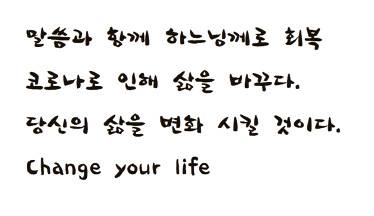 말씀과 함께 하느님께로 회복
코로나로 인해 삶을 바꾸다.
당신의 삶을 변화 시킬 것이다.
Change your life